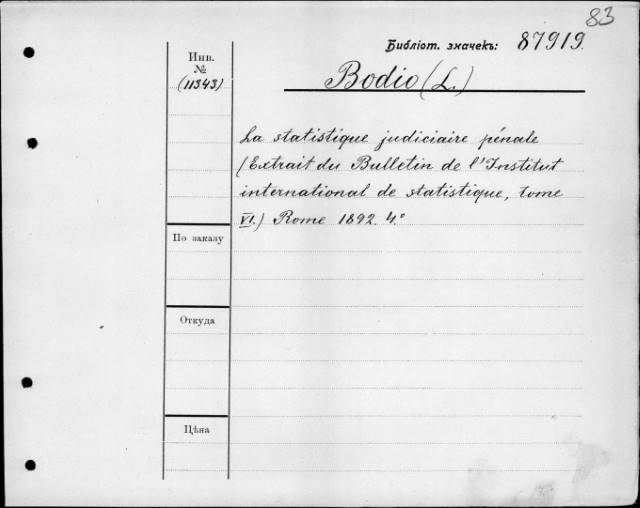 83
Библіот. значекъ: 87919.
Инв.
№
(11343)
Bodio (L.)
La statistique judiciaire pénale
(Extrait du Bulletin de l'Institut
international de statistique, tome
VI.) Rome 1892. 4.°
По заказу
Откуда
Цѣна